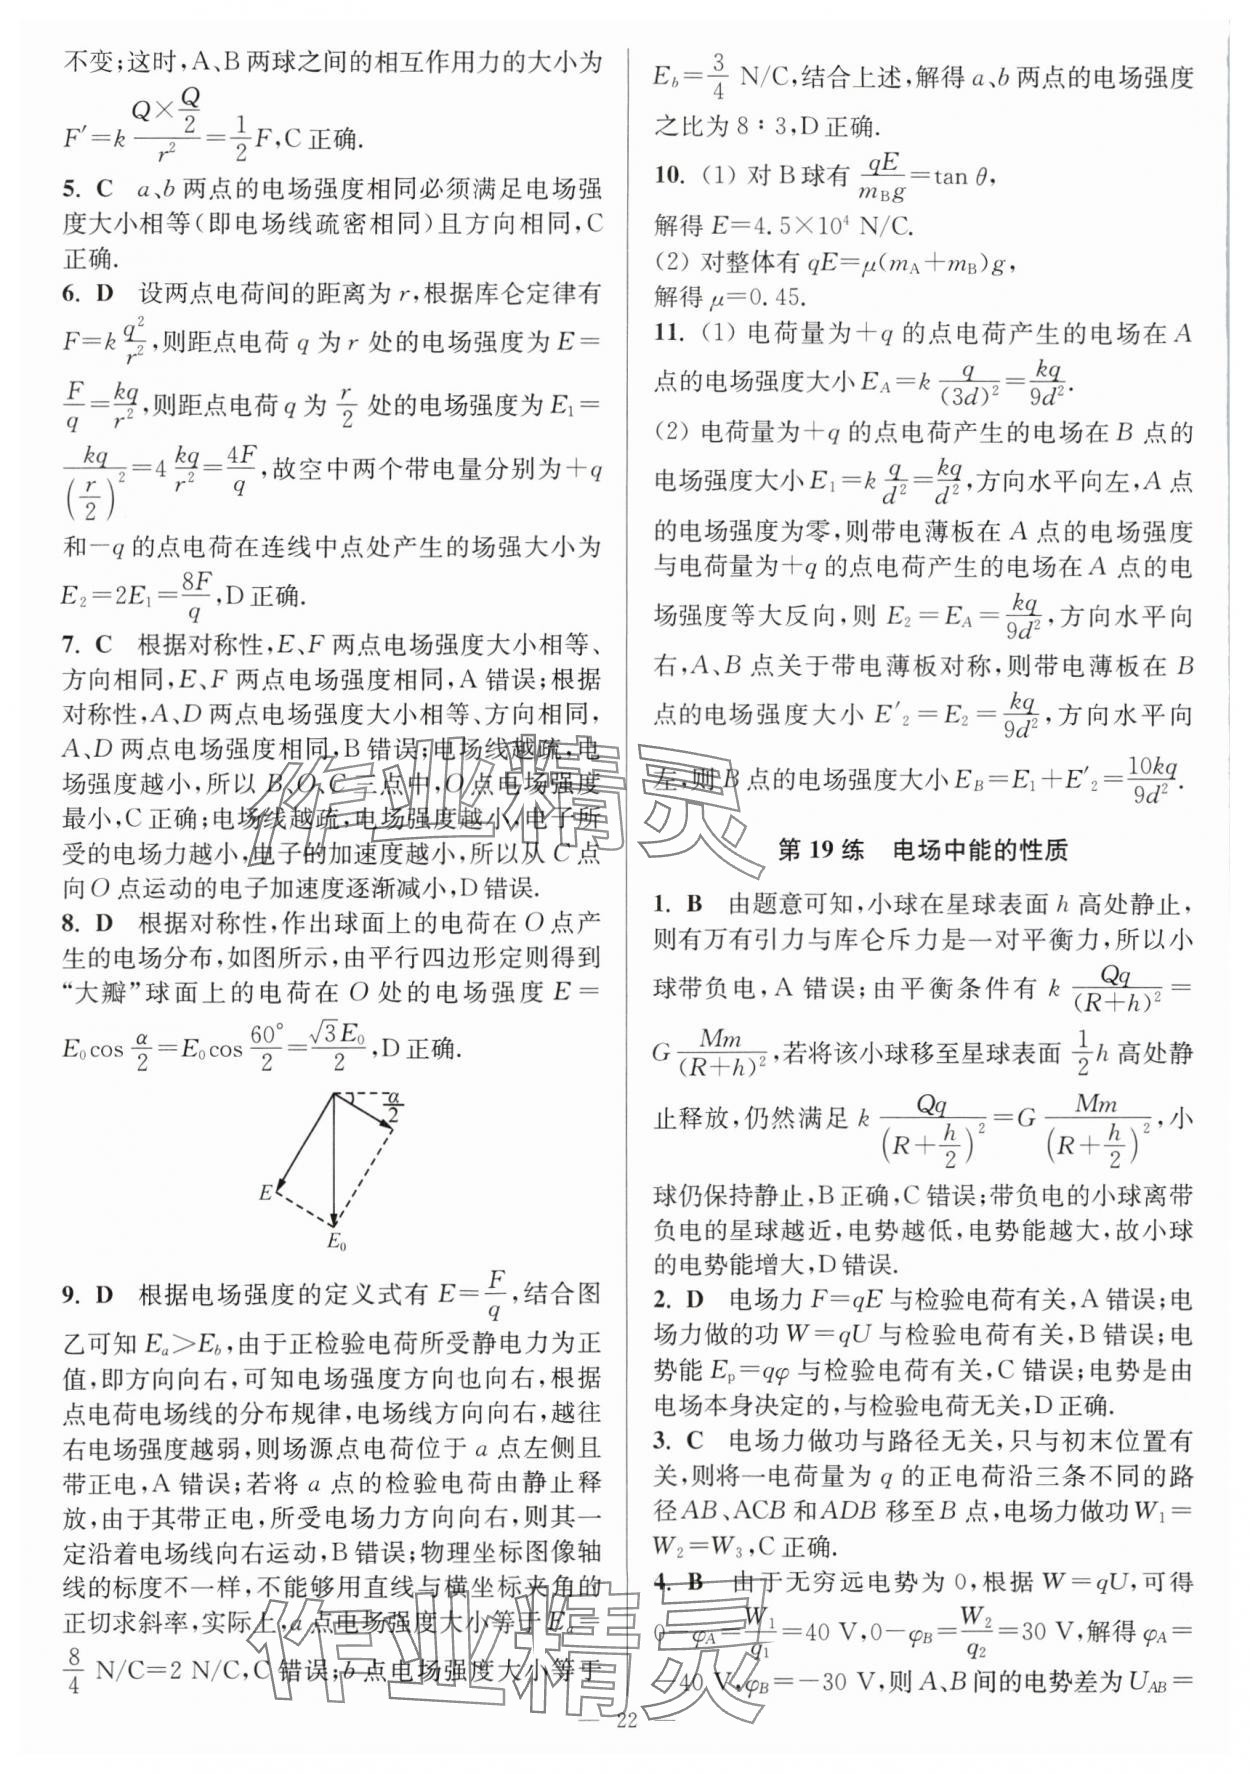 不变;这时,A、B 两球之间的相互作用力的大小为
F′=k (Q×Q/2)/r²=1/2 F,C 正确.
5. C a、b 两点的电场强度相同必须满足电场强
度大小相等(即电场线疏密相同)且方向相同,C
正确.
6. D 设两点电荷间的距离为 r,根据库仑定律有
F=k q²/r²,则距点电荷 q 为 r 处的电场强度为 E=
F/q=kq/r²,则距点电荷 q 为 r/2 处的电场强度为 E₁=
kq/(r/2)²=4 kq/r²=4F/q,故空中两个带电量分别为+q
和-q 的点电荷在连线中点处产生的场强大小为
E₂=2E₁=8F/q,D 正确.
7. C 根据对称性,E、F 两点电场强度大小相等、
方向相同,E、F 两点电场强度相同,A 错误;根据
对称性,A、D 两点电场强度大小相等、方向相同,
A、D 两点电场强度相同,B 错误;电场线越疏,电
场强度越小,所以 B、O、C 三点中,O 点电场强度
最小,C 正确;电场线越疏,电场强度越小,电子所
受的电场力越小,电子的加速度越小,所以从 C 点
向 O 点运动的电子加速度逐渐减小,D 错误.
8. D 根据对称性,作出球面上的电荷在 O 点产
生的电场分布,如图所示,由平行四边形定则得到
“大瓣”球面上的电荷在 O 处的电场强度 E=
E₀cos α/2=E₀cos 60°/2=√3E₀/2,D 正确.
α/2
E
E₀
9. D 根据电场强度的定义式有 E=F/q,结合图
乙可知 Eₐ>E_b,由于正检验电荷所受静电力为正
值,即方向向右,可知电场强度方向也向右,根据
点电荷电场线的分布规律,电场线方向向右,越往
右电场强度越弱,则场源点电荷位于 a 点左侧且
带正电,A 错误;若将 a 点的检验电荷由静止释
放,由于其带正电,所受电场力方向向右,则其一
定沿着电场线向右运动,B 错误;物理坐标图像轴
线的标度不一样,不能够用直线与横坐标夹角的
正切求斜率,实际上,a 点电场强度大小等于 Eₐ=
8/4 N/C=2 N/C,C 错误;b 点电场强度大小等于
E_b=3/4 N/C,结合上述,解得 a、b 两点的电场强度
之比为 8∶3,D 正确.
10. (1) 对 B 球有 qE/(m_B g)=tan θ,
解得 E=4.5×10⁴ N/C.
(2) 对整体有 qE=μ(m_A+m_B)g,
解得 μ=0.45.
11. (1) 电荷量为+q 的点电荷产生的电场在 A
点的电场强度大小 E_A=k q/(3d)²=kq/9d².
(2) 电荷量为+q 的点电荷产生的电场在 B 点的
电场强度大小 E₁=k q/d²=kq/d²,方向水平向左,A 点
的电场强度为零,则带电薄板在 A 点的电场强度
与电荷量为+q 的点电荷产生的电场在 A 点的电
场强度等大反向,则 E₂=E_A=kq/9d²,方向水平向
右,A、B 点关于带电薄板对称,则带电薄板在 B
点的电场强度大小 E′₂=E₂=kq/9d²,方向水平向
左,则 B 点的电场强度大小 E_B=E₁+E′₂=10kq/9d².
第 19 练 电场中能的性质
1. B 由题意可知,小球在星球表面 h 高处静止,
则有万有引力与库仑斥力是一对平衡力,所以小
球带负电,A 错误;由平衡条件有 k Qq/(R+h)²=
G Mm/(R+h)²,若将该小球移至星球表面 1/2 h 高处静
止释放,仍然满足 k Qq/(R+h/2)²=G Mm/(R+h/2)²,小
球仍保持静止,B 正确,C 错误;带负电的小球离带
负电的星球越近,电势越低,电势能越大,故小球
的电势能增大,D 错误.
2. D 电场力 F=qE 与检验电荷有关,A 错误;电
场力做的功 W=qU 与检验电荷有关,B 错误;电
势能 Eₚ=qφ 与检验电荷有关,C 错误;电势是由
电场本身决定的,与检验电荷无关,D 正确.
3. C 电场力做功与路径无关,只与初末位置有
关,则将一电荷量为 q 的正电荷沿三条不同的路
径 AB、ACB 和 ADB 移至 B 点,电场力做功 W₁=
W₂=W₃,C 正确.
4. B 由于无穷远电势为 0,根据 W=qU,可得
0-φ_A=W₁/q₁=40 V,0-φ_B=W₂/q₂=30 V,解得 φ_A=
-40 V,φ_B=-30 V,则 A、B 间的电势差为 U_AB=
— 22 —
作业精灵
作业精灵